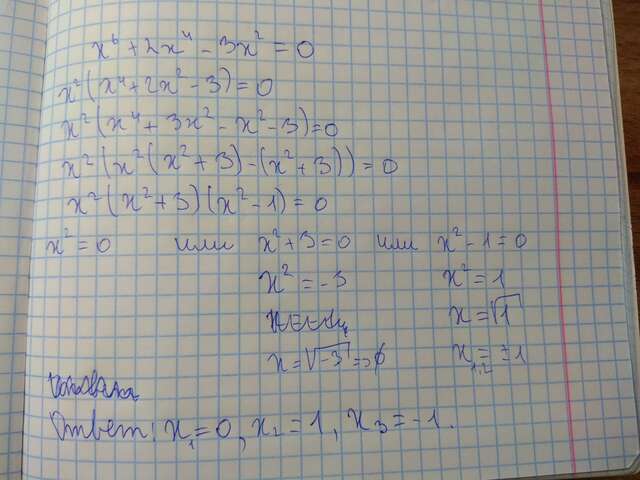 x⁶ + 2x⁴ - 3x² = 0
x²(x⁴ + 2x² - 3) = 0
x²(x⁴ + 3x² - x² - 3) = 0
x²(x²(x² + 3) - (x² + 3)) = 0
x²(x² + 3)(x² - 1) = 0
x² = 0 или x² + 3 = 0 или x² - 1 = 0
x² = -3 x² = 1
x = √1
x = √-3 => ∅ x₁,₂ = ±1
Ответ: x₁ = 0, x₂ = 1, x₃ = -1.